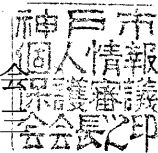 神戸市
個人情報
会
保護審議
会会長之印